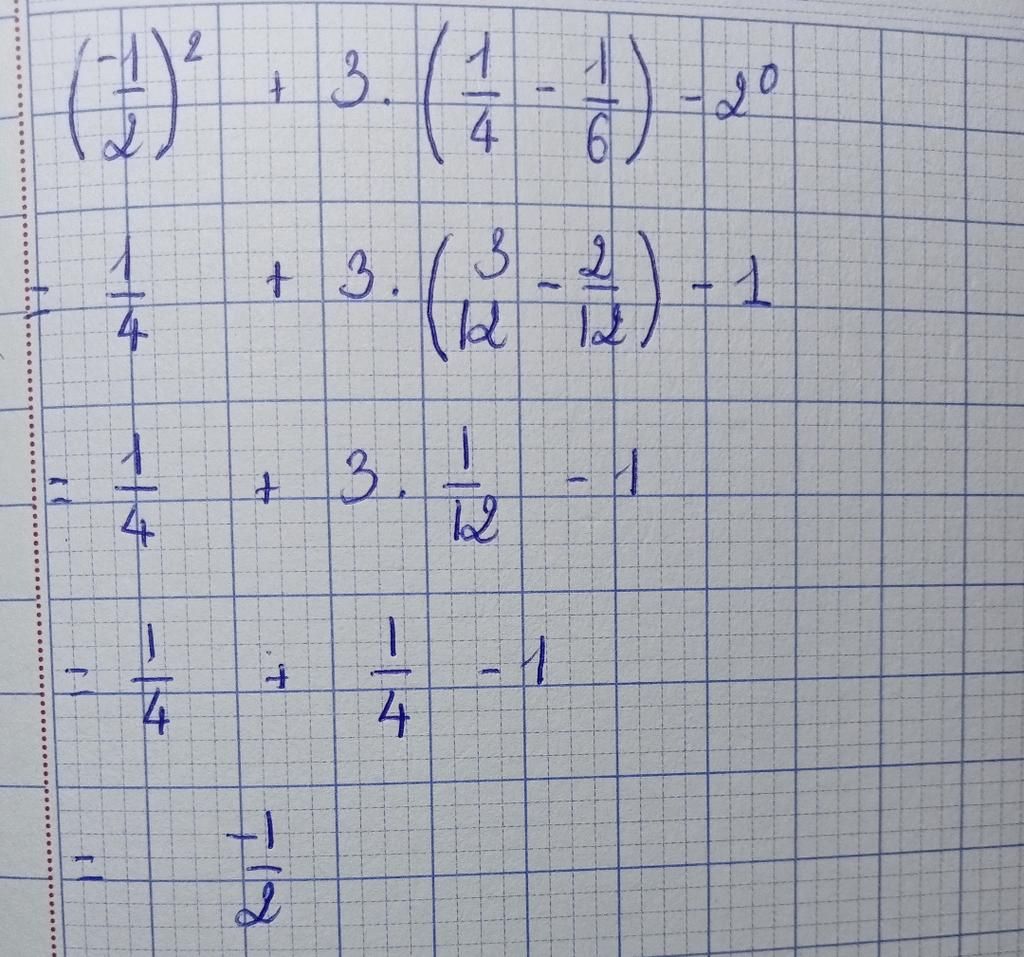 (-1/2)² + 3. (1/4 - 1/6) - 2⁰
= 1/4 + 3. (3/12 - 2/12) - 1
= 1/4 + 3. 1/12 - 1
= 1/4 + 1/4 - 1
= -1/2